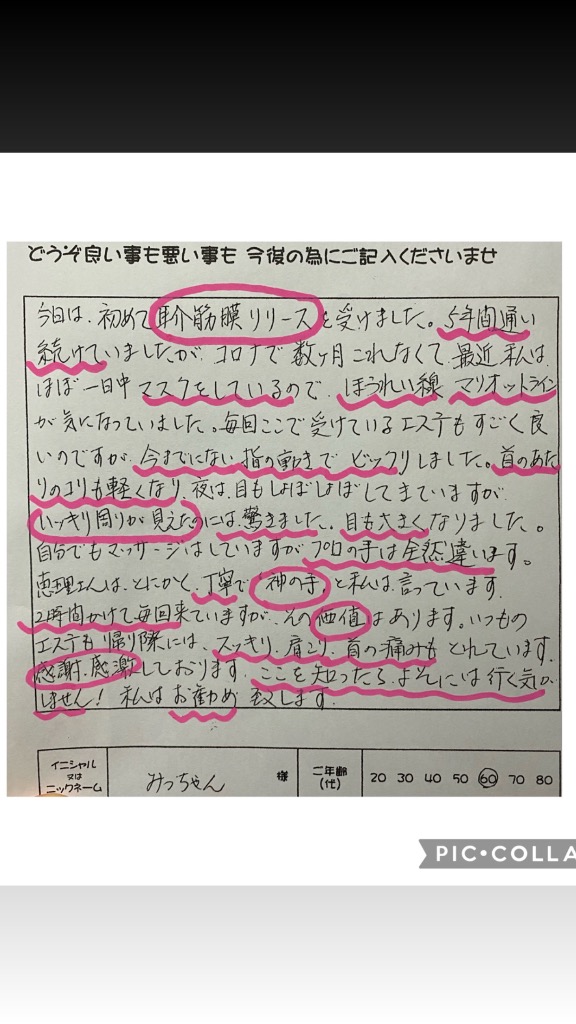 どうぞ良い事も悪い事も 今後の為にご記入くださいませ
今日は、初めて耳介筋膜リリースを受けました。5年間通い
続けていましたが コロナで 数ヶ月 これなくて、最近 私は、
ほぼ一日中 マスクをしているので、ほうれい線 マリオットライン
が気になっていました。毎回ここで受けているエステもすごく良
いのですが、今までにない 指の動きで ビックリしました。首のあた
りのコリも軽くなり、夜は、目もしょぼしょぼしてきていますが、
いっきり周りが見えたのには、驚きました。目も大きくなりました。
自分でもマッサージはしていますが プロの手は全然違います。
恵理さんは、とにかく、丁寧で「神の手」と私は、言っています。
2時間かけて毎回来ていますが、その価値はあります。いつもの
エステも 帰り際には、スッキリ、肩こり、首の痛みも とれています。
感謝、感謝しております。ここを知ったら、よそには行く気が
しません! 私は お勧め 致します。
イニシャル
又は
ニックネーム
みっちゃん
様
ご年齢
(代)
20 30 40 50 60 70 80
PIC•COLLA